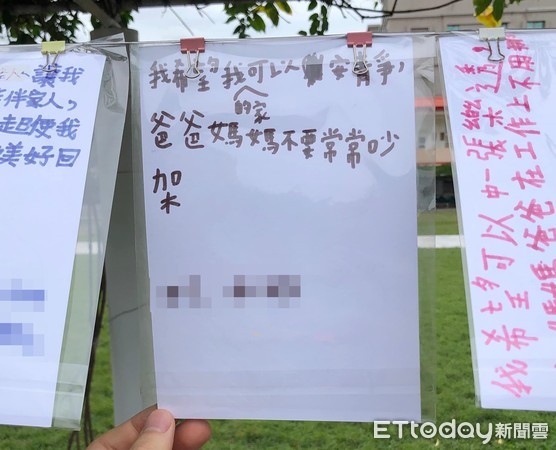 讓我
伴家人,
起使我
美好回
我希望我可以安靜,
的家
爸爸媽媽不要常常吵
架
我希望可以中一張樂透!
媽媽爸爸在工作上不用
ETtoday新聞雲